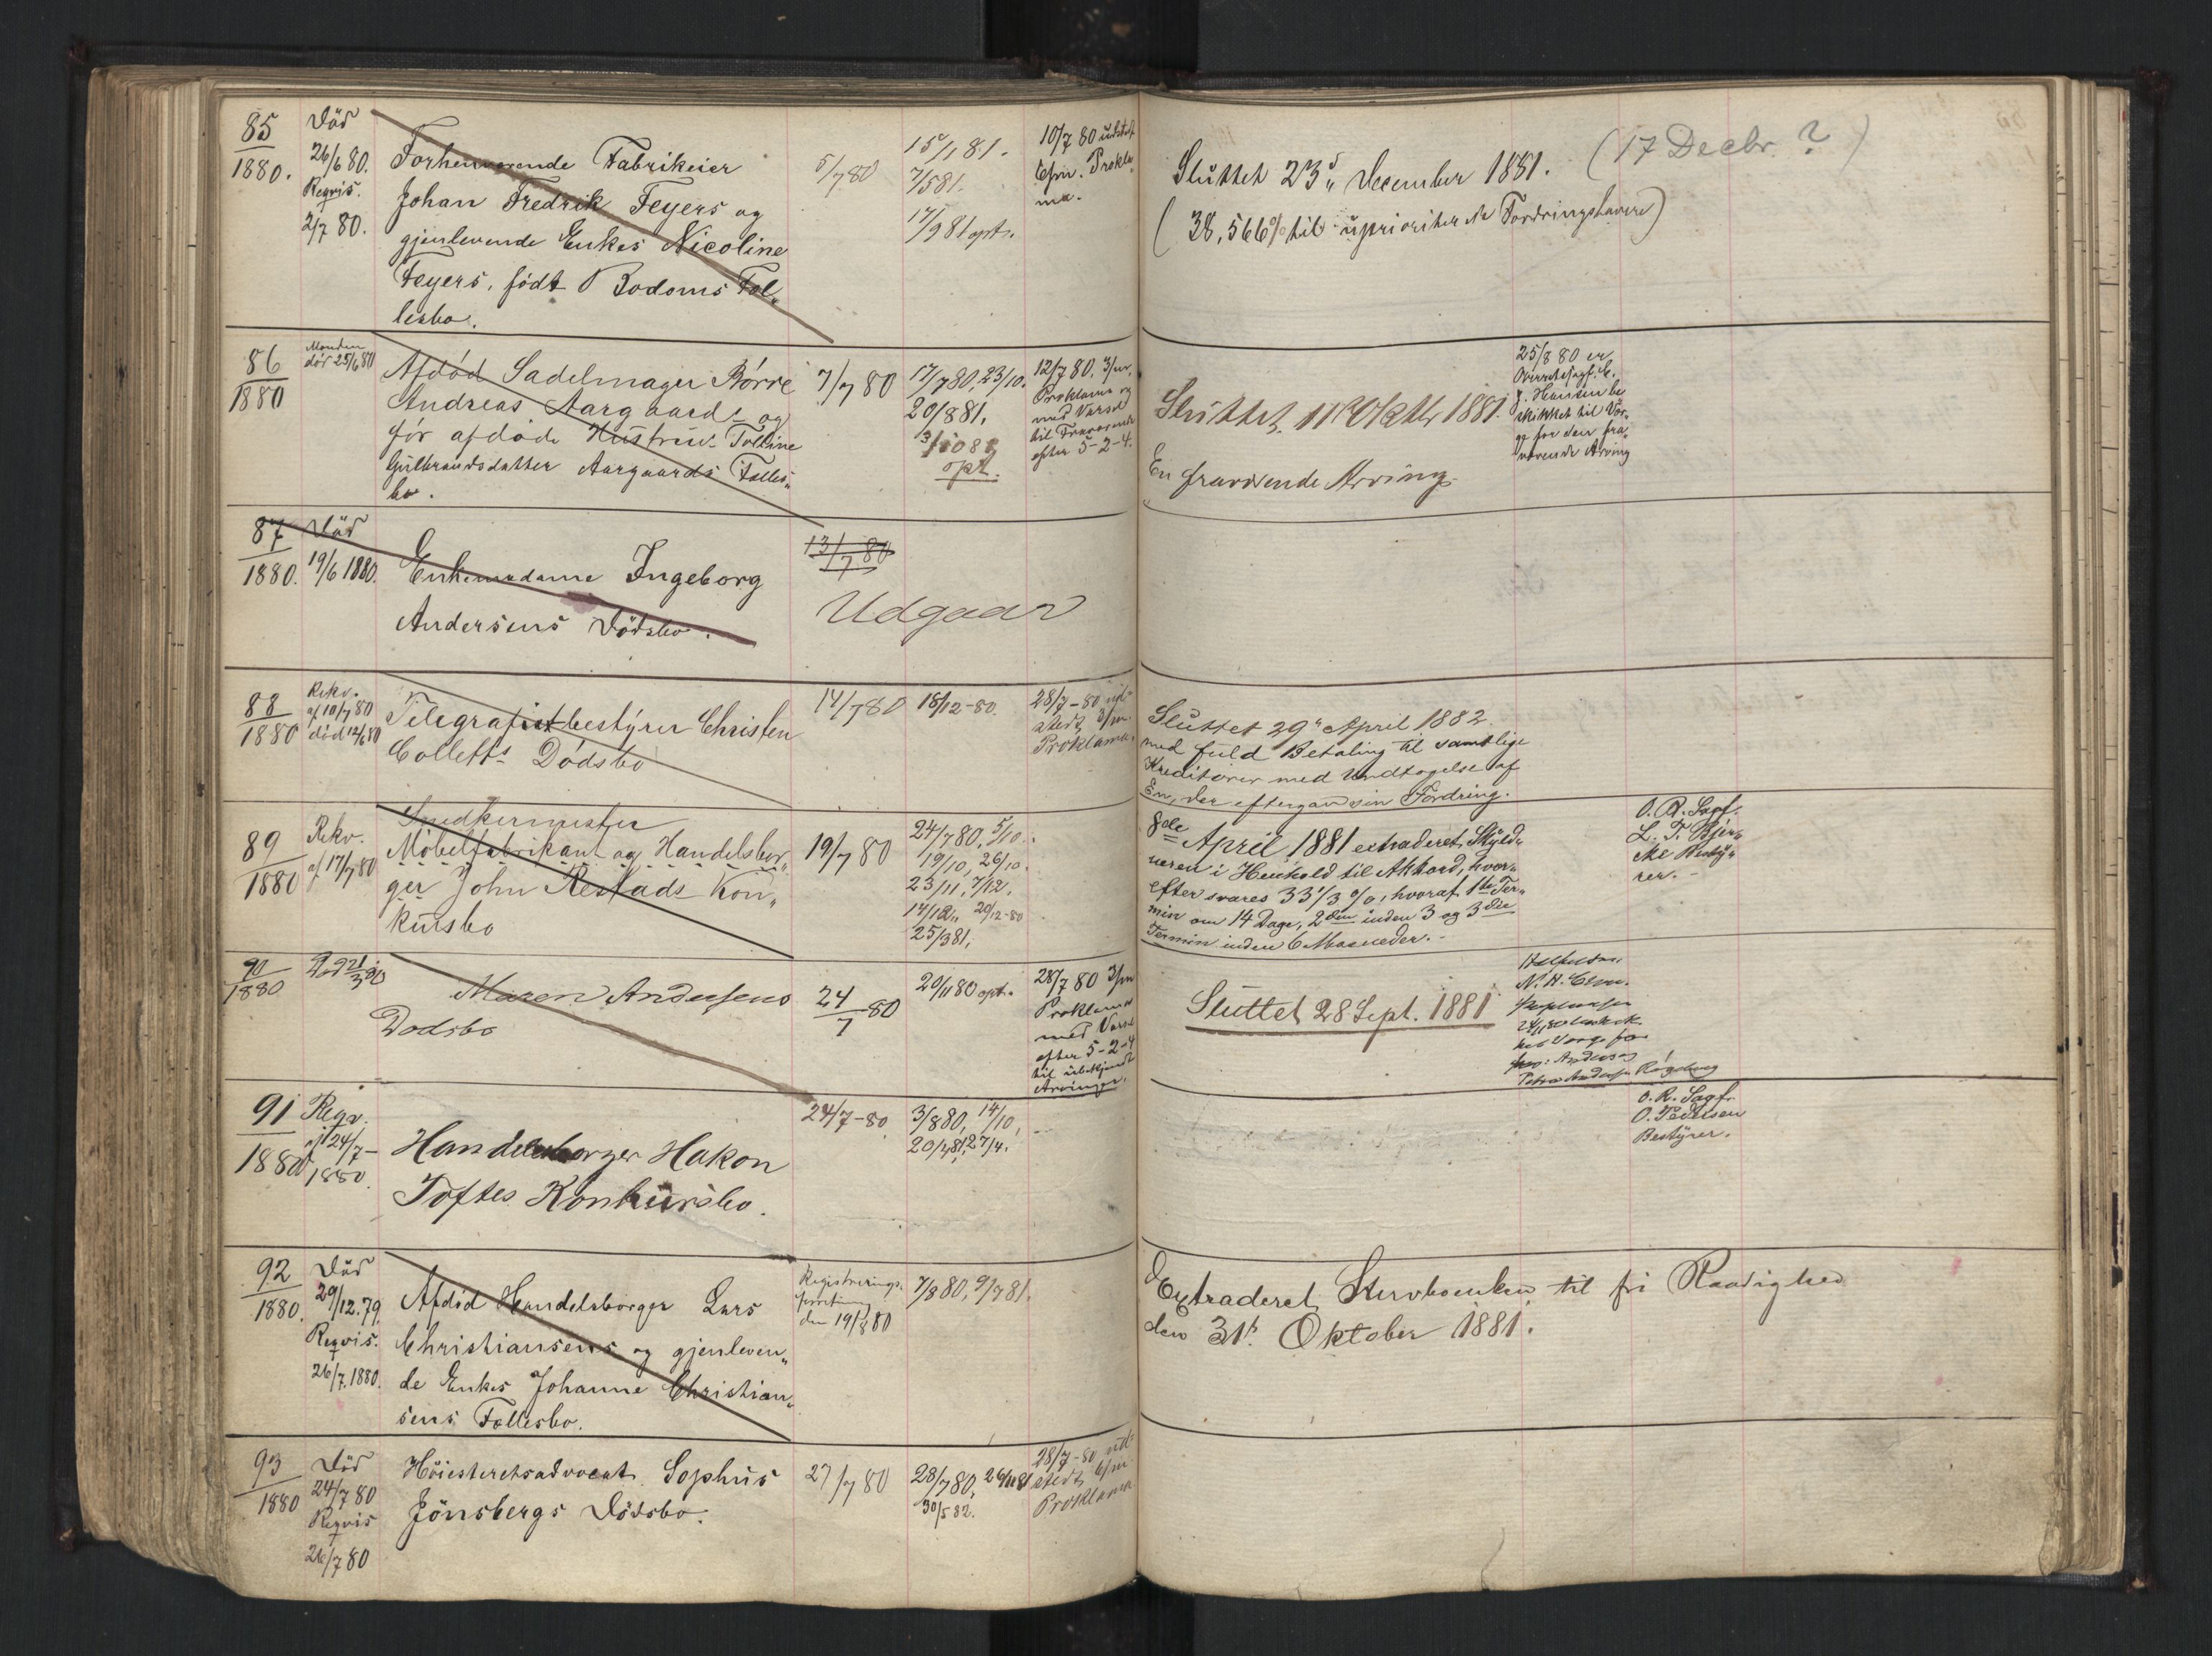 85
1880.
Död
26/6 80.
Reqvis.
2/7 80.
Forhenværende Fabrikeier
Johan Fredrik Feyers og
gjenlevende Enkes Nicoline
Feyers, födt Bodoms Fæl„
lesbo.
5/7 80
15/1 81.
7/5 81.
17/9 81 opt.
10/7 80 udstedt
6/m. Prokla„
ma.
Sluttet 23„ December 1881. (17 Decbr. ?)
(38,566% til uprioriterede Fordringshavere)
86
1880
Manden
död 25/6 80
Afdöd Sadelmager Börre
Andreas Aargaards og
för afdöde Hustrus Tolline
Gulbrandsdatter Aargaards Fælles„
bo.
7/7 80
17/7 80, 23/10.
20/8 81.
opt.
12/7 80, 3/m.
Proklama og
med Varsel
til Fraværende
efter 5-2-4.
Sluttet 11 Oktbr 1881.
En fraværende Arving.
25/8 80 er
Overretssagf.
J. Hansen be
skikket til Vær„
ge for den fra„
værende Arving
87
1880.
Död
19/6 1880.
Enkemadame Ingeborg
Andersens Dödsbo.
13/7 80
Udgaar
88
1880
Rekv.
af 10/7 80
död 12/6 80
Telegrafistbestyrer Christen
Colletts Dödsbo
14/7 80
18/12-80.
28/7-80 ud„
stedt 3/m.
Proklama.
Sluttet 29 April 1882
med fuld Betaling til samtlige
Kreditorer med Undtagelse af
En, der eftergav sin Fordring.
89
1880
Rekv.
af 17/7 80
Snedkermester
Möbelfabrikant og Handelsbor„
ger John Restads Kon„
kursbo
19/7 80
24/7 80, 5/10.
19/10, 26/10.
23/11, 7/12.
14/12, 20/12-80
25/3 81,
8de April 1881 extraderet Skyld„
neren i Henhold til Akkord, hvor„
efter svares 33 1/3 %, hvoraf 1ste Ter„
min om 14 Dage, 2den inden 3 og 3die
Termin inden 6 Maaneder.
O. R. Sagf.
L. T. Bjer„
cke Besty„
rer.
90
1880
Död 21/3 80
Maren Andersens
Dødsbo
24/7 80
20/11 80 opt.
28/7 80 3/m
Proklama
med Varsel
efter 5-2-4
til ubekjendte
Arvinger.
Sluttet 28 Sept. 1881
Petra Andersen
91
1880
Reqv.
af 24/7-
1880.
Handelsborger Hakon
Toftes Konkursbo.
24/7-80.
3/8 80, 14/10,
20/1 81, 27/4.
O. R. Sagf.
O. Pedersen
Bestyrer.
92
1880.
Död
29/12.79.
Reqvis.
26/7.1880.
Afdöd Handelsborger Lars
Christiansens og gjenleven„
de Enkes Johanne Christian„
sens Fællesbo.
Registrerings„
forretning
den 19/8 80
7/8 80, 9/7 81.
Extraderet Stervboenken til fri Raadighed
den 31te Oktober 1881.
93
1880
Död
24/7 80
Reqvis
26/7 80
Höiesteretsadvocat Sophus
Jönsbergs Dödsbo.
27/7 80
28/7 80, 26/11 81
30/5 82.
28/7-80 ud„
stedt 6/m
Proklama